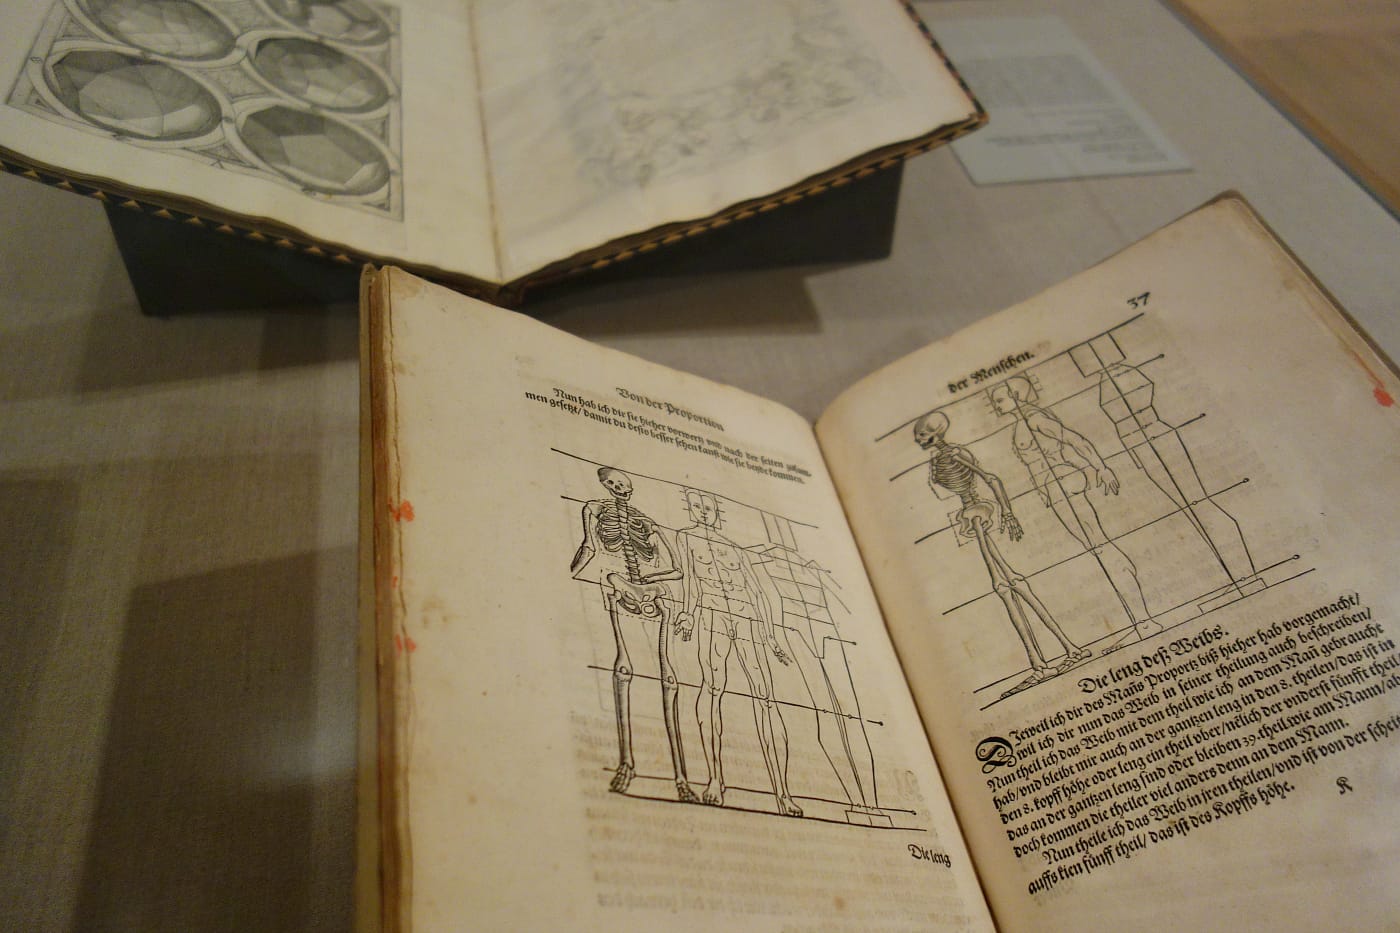 Von der Proportion
Nun hab ich die sie hieher vorwertz vnd nach der seiten zusam⸗
men gesetzt/ damit du desto besser sehen kanst wie sie beyde kommen.
Die leng
der Menschen.
37
Die leng deß Weibs.
Dieweil ich dir des Mañs Proportz biß hieher hab vorgemacht/
wil ich dir nun das Weib in seiner theilung auch beschreiben/
Nun theil ich das Weib mit dem theil wie ich an dem Mañ gebraucht
hab/ vnd bleibt mir auch an der gantzen leng in den 8. theilen/ das ist in
den 8. kopff höhe oder leng ein theil vber/ nklich der vnderst fünfft theil/
das an der gantzen leng sind oder bleiben 39. theil wie am Mann/ ab
doch kommen die theiler viel anders denn an dem Mann.
Nun theile ich das Weib in jren theilen/ vnd ist von der scheit
auffs kien fünff theil/ das ist des Kopffs höhe.
K